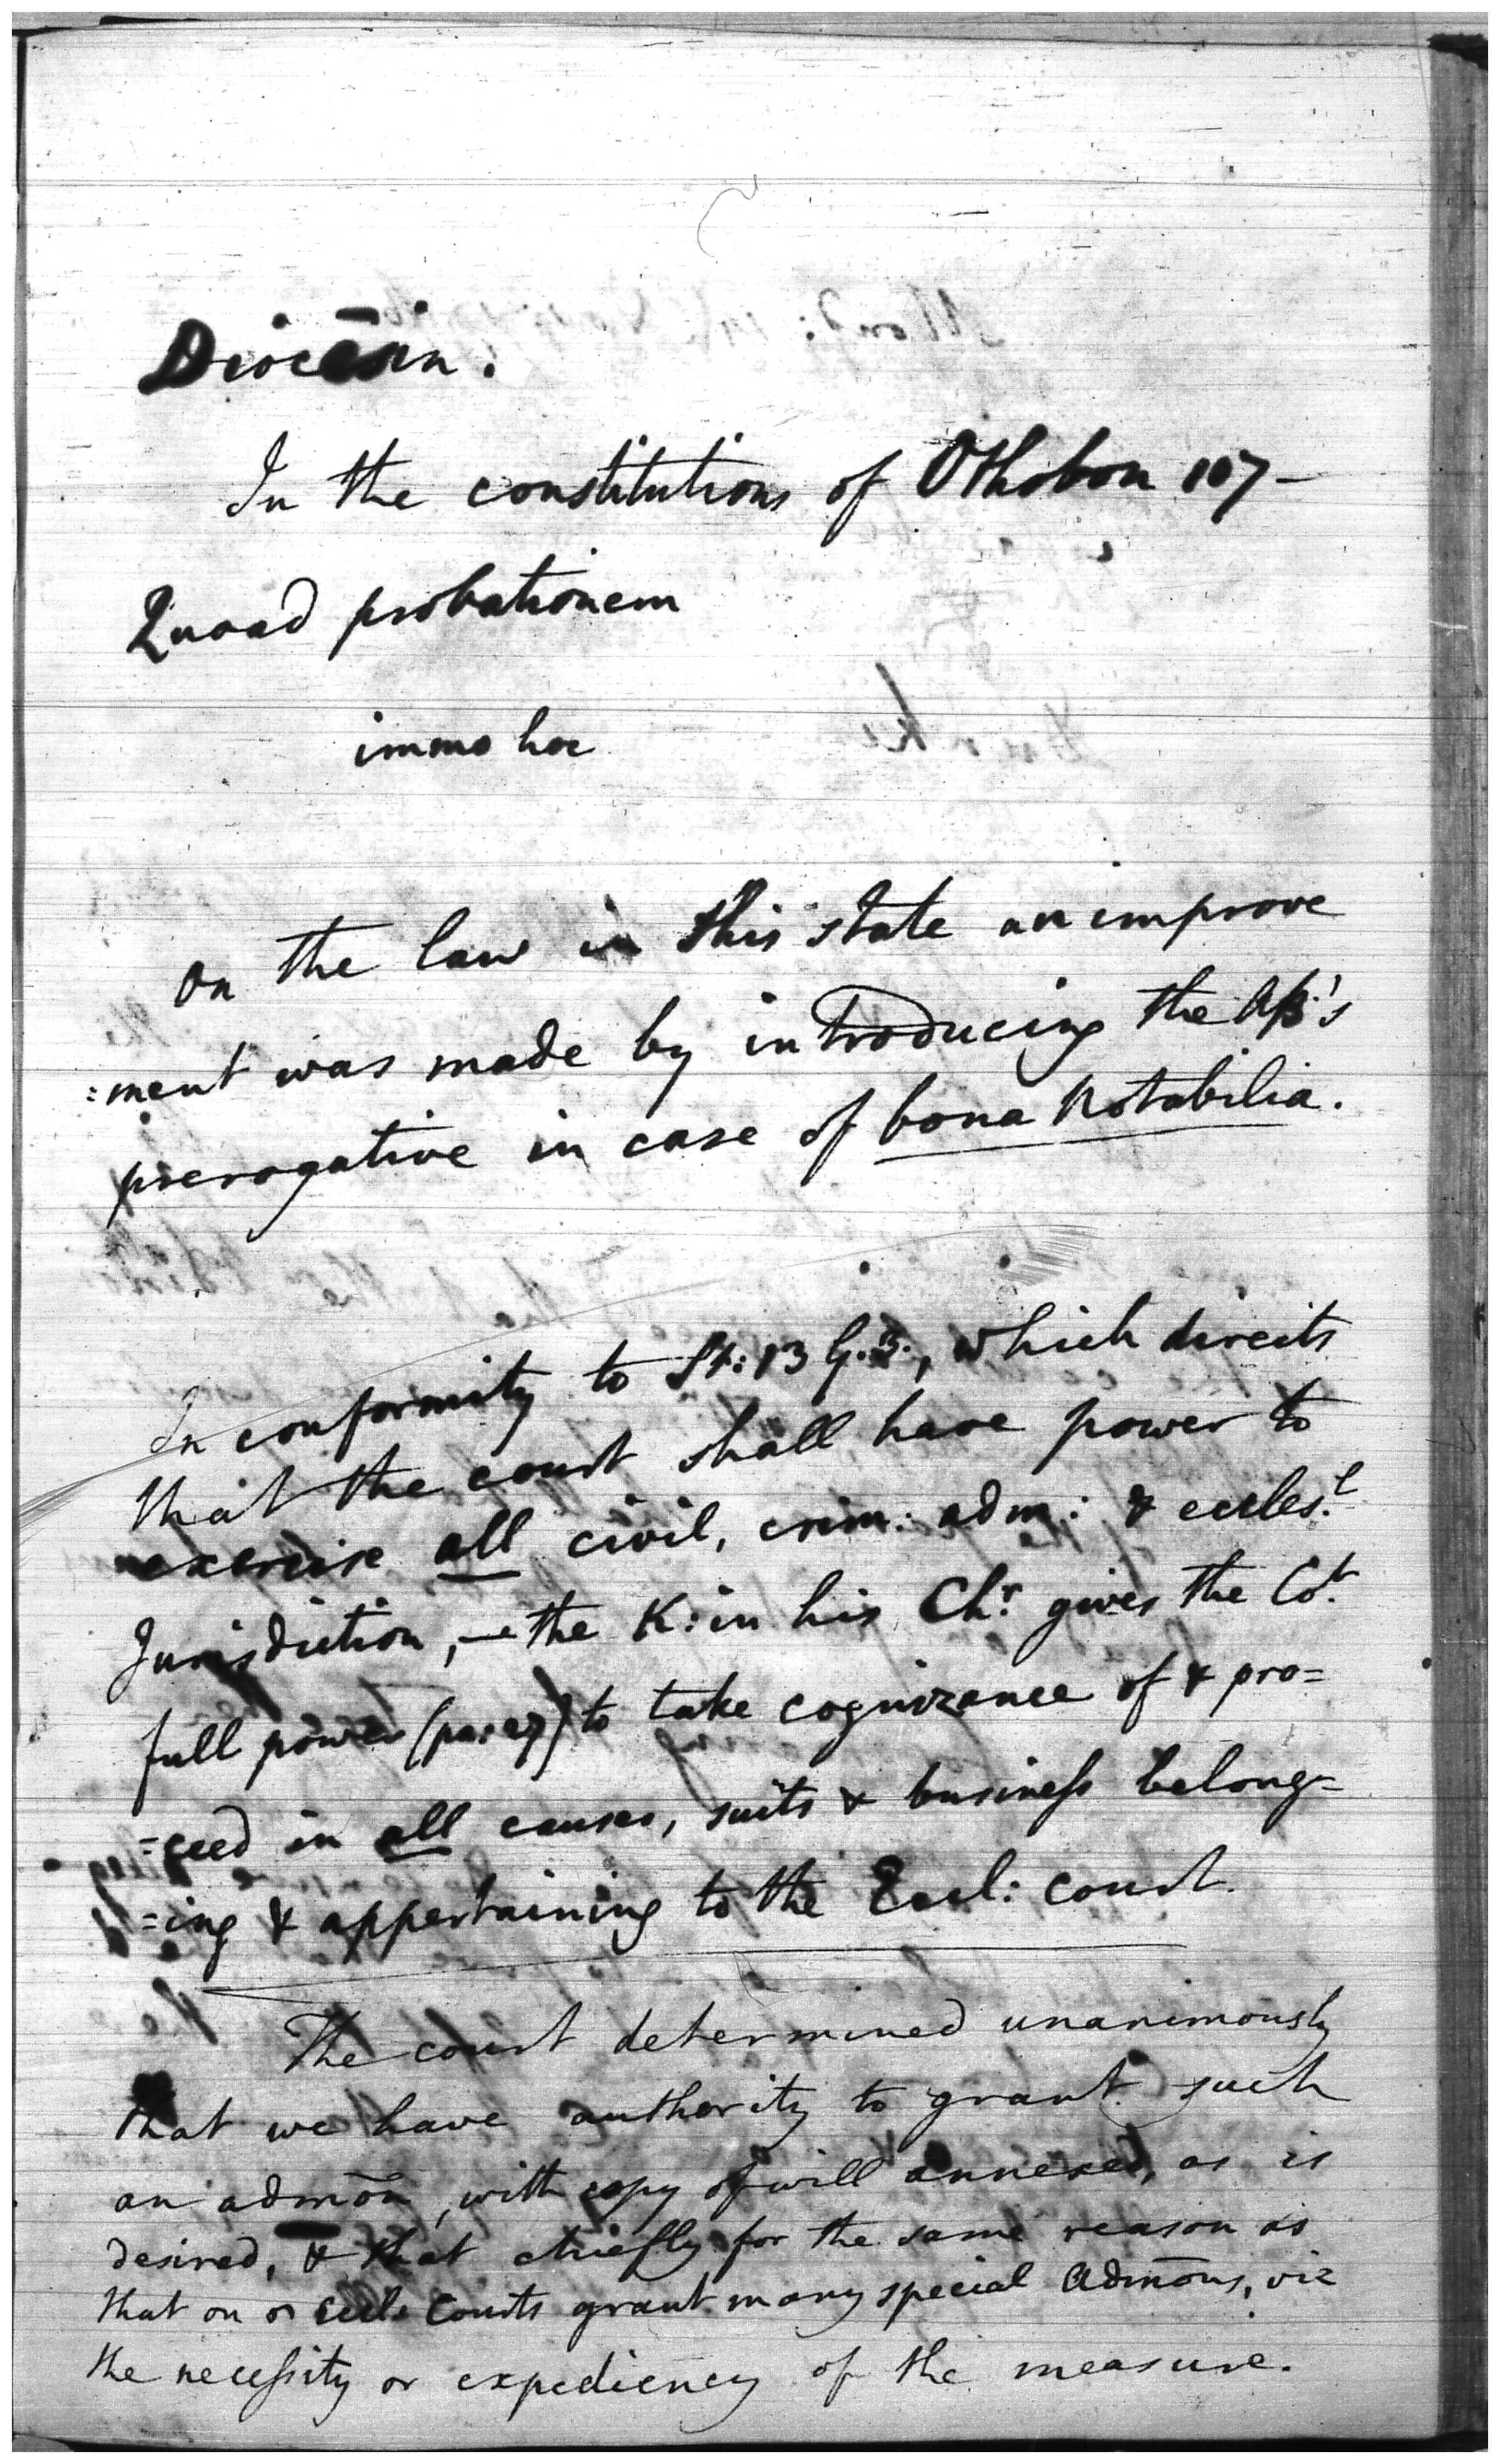 Diocēsin.
In the constitutions of Othobon 107-
Quoad probationem
immo hoc
On the law in this state an improve
=ment was made by introducing the AB's
prerogative in case of bona Notabilia.
In conformity to St: 13 G. 3., which directs
that the court shall have power to
exercise all civil, crim: adm: & eccles.l
Jurisdiction, — the K: in his Chr. gives the Cot.
full power (pa: 27) to take cognizance of & pro=
=ceed in all causes, suits & business belong=
=ing & appertaining to the Eccl: court.
The court determined unanimously
that we have authority to grant such
an admōn, with copy of will annexed, as is
desired, & that chiefly for the same reason as
that on eccl: Courts grant many special Admōns, viz
the necessity or expediency of the measure.